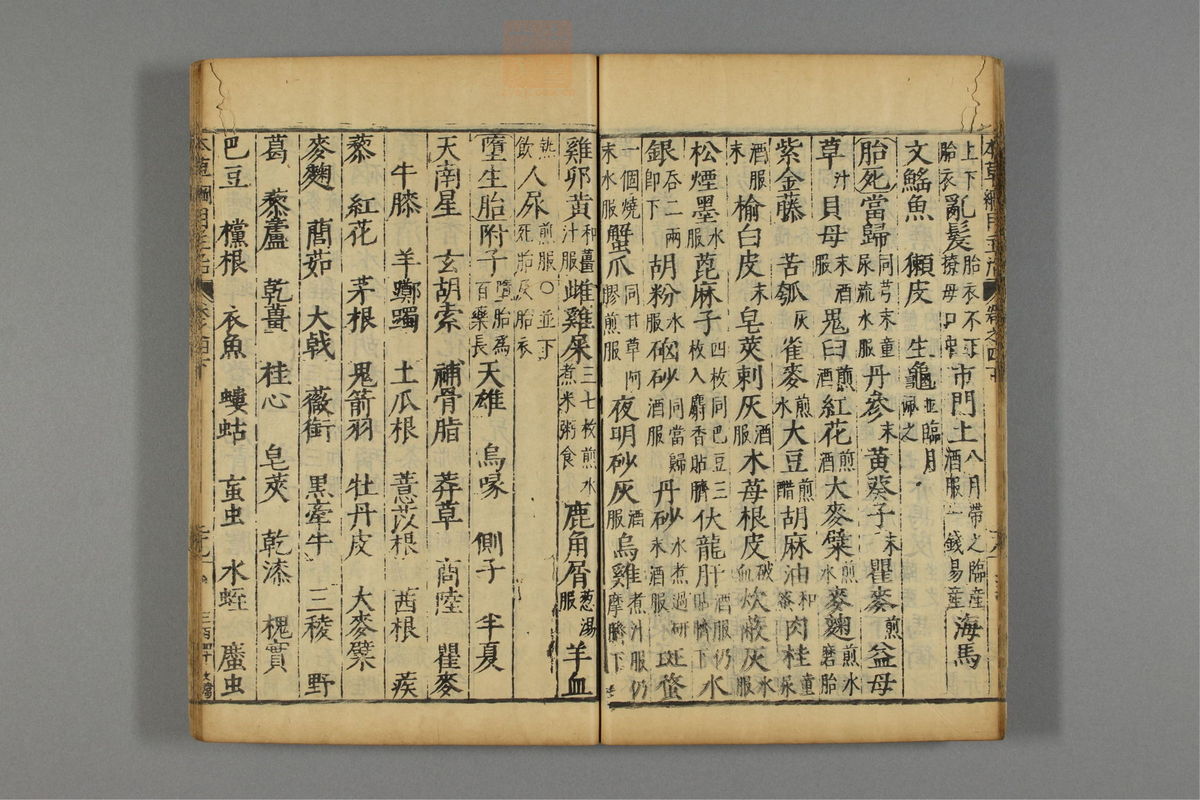 上下胎衣亂髮胎衣不下撩母口中市門土八月帶之臨產酒服一錢易產海馬
文鰩魚　獺皮　生龜並臨月佩之
胎死當歸同芎末童尿流水服丹參末黃葵子末瞿麥煎益母
草汁貝母末酒服鬼臼煎酒紅花煎酒大麥糵煎水麥麴煎水磨胎
紫金藤　苦瓠灰雀麥煎水大豆煎醋胡麻油和蜜肉桂童尿
酒服末榆白皮末皂莢刺灰酒服木莓根皮破血炊蔽灰水服
松煙墨水服蓖麻子四枚同巴豆三枚入麝香貼臍伏龍肝酒服仍貼臍下水
銀吞二兩即下胡粉水服硇砂同當歸酒服丹砂水煮過研末酒服斑蝥
一個燒末水服蟹爪同甘草阿膠煎服夜明砂灰酒服烏雞煮汁服仍摩臍下
雞卵黃和薑汁服雌雞屎三七枚煎水煮米粥食鹿角屑蔥湯服羊血
熱飲人尿煎服○並下死胎及胎衣
墮生胎附子墮胎為百藥長天雄　烏喙　側子　半夏
天南星　玄胡索　補骨脂　莽草　商陸　瞿麥
牛膝　羊躑躅　土瓜根　薏苡根　茜根　蒺
藜　紅花　茅根　鬼箭羽　牡丹皮　大麥糵
麥麴　䕡茹　大戟　薇銜　黑牽牛　三稜　野
葛　藜蘆　乾薑　桂心　皂莢　乾漆　槐實
巴豆　欓根　衣魚　螻蛄　虻虫　水蛭　䗪虫